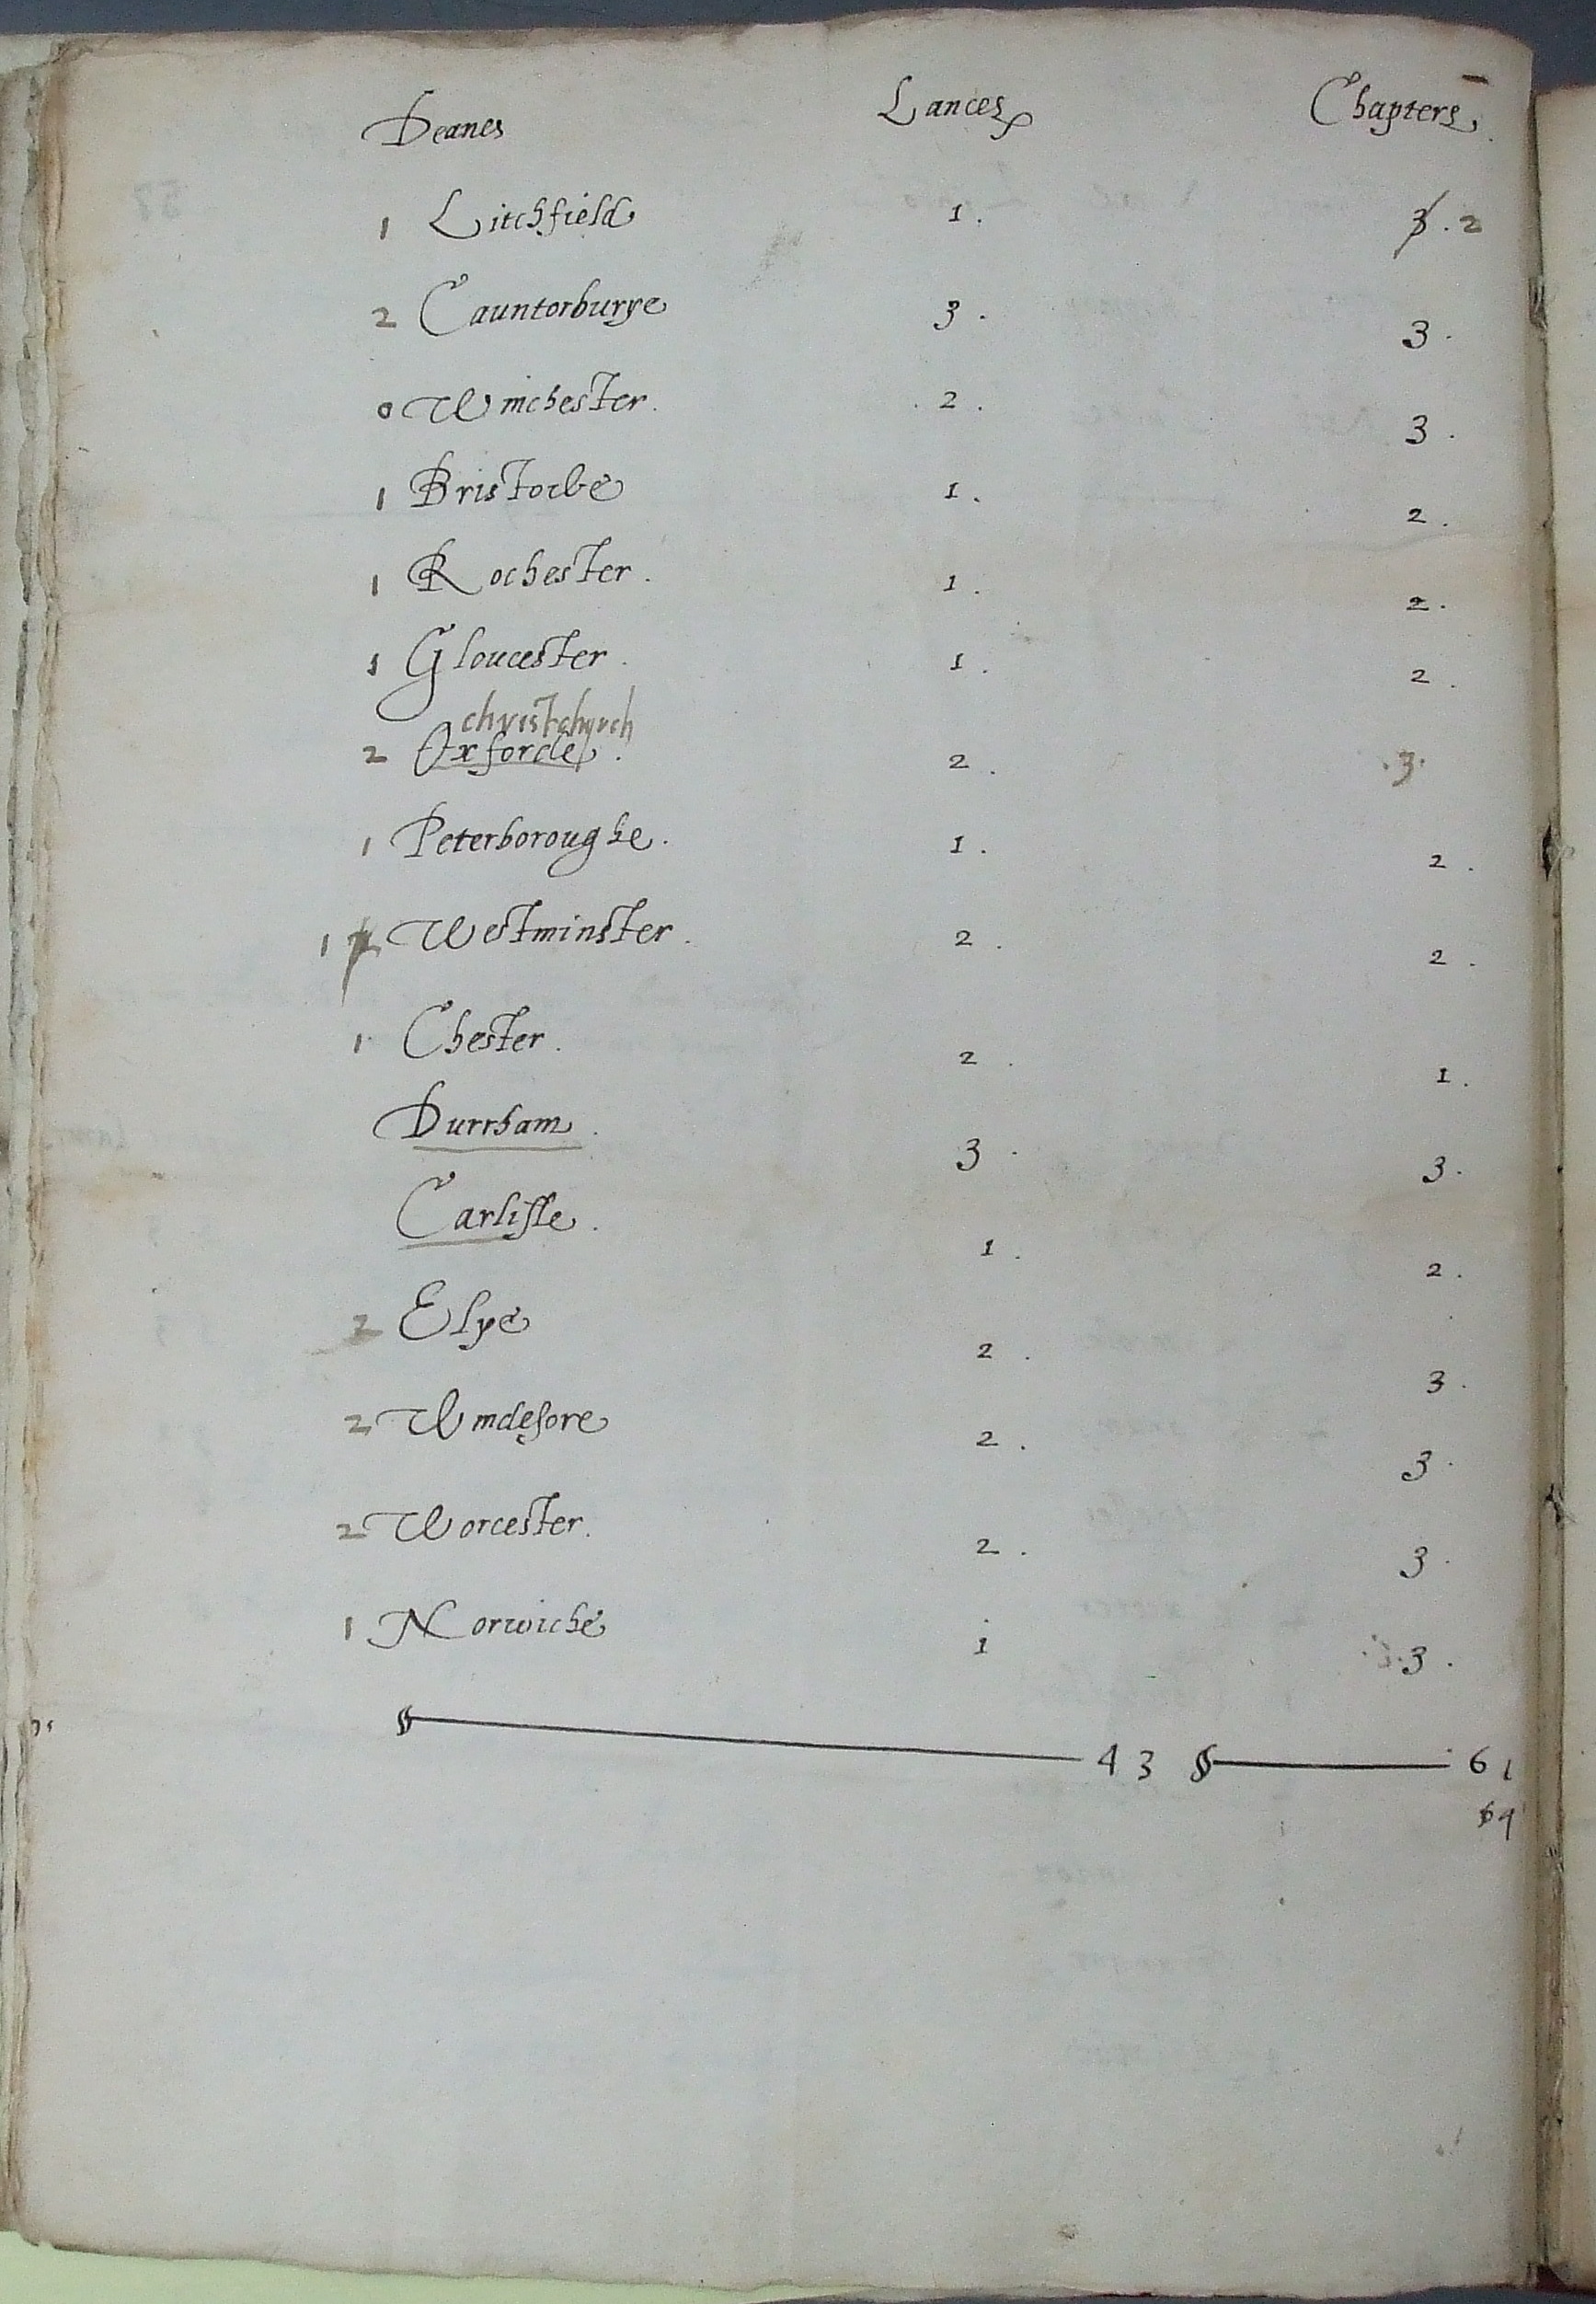 Deanes Lances Chapters
1 Litchfield 1. 3. 2
2 Caunterburye 3. 3.
0 Winchester. 2. 3.
1 Bristowe 1. 2.
1 Rochester. 1. 2.
1 Gloucester. 1. 2.
christchurch
2 Oxforde. 2. .3.
1 Peterboroughe. 1. 2.
1 2 Westminster. 2. 2.
1 Chester. 2. 1.
Durrham. 3. 3.
Carlisle. 1. 2.
2 Elye 2. 3.
2 Windesore 2. 3.
2 Worcester. 2. 3.
1 Norwiche 1 3.
43 61
64